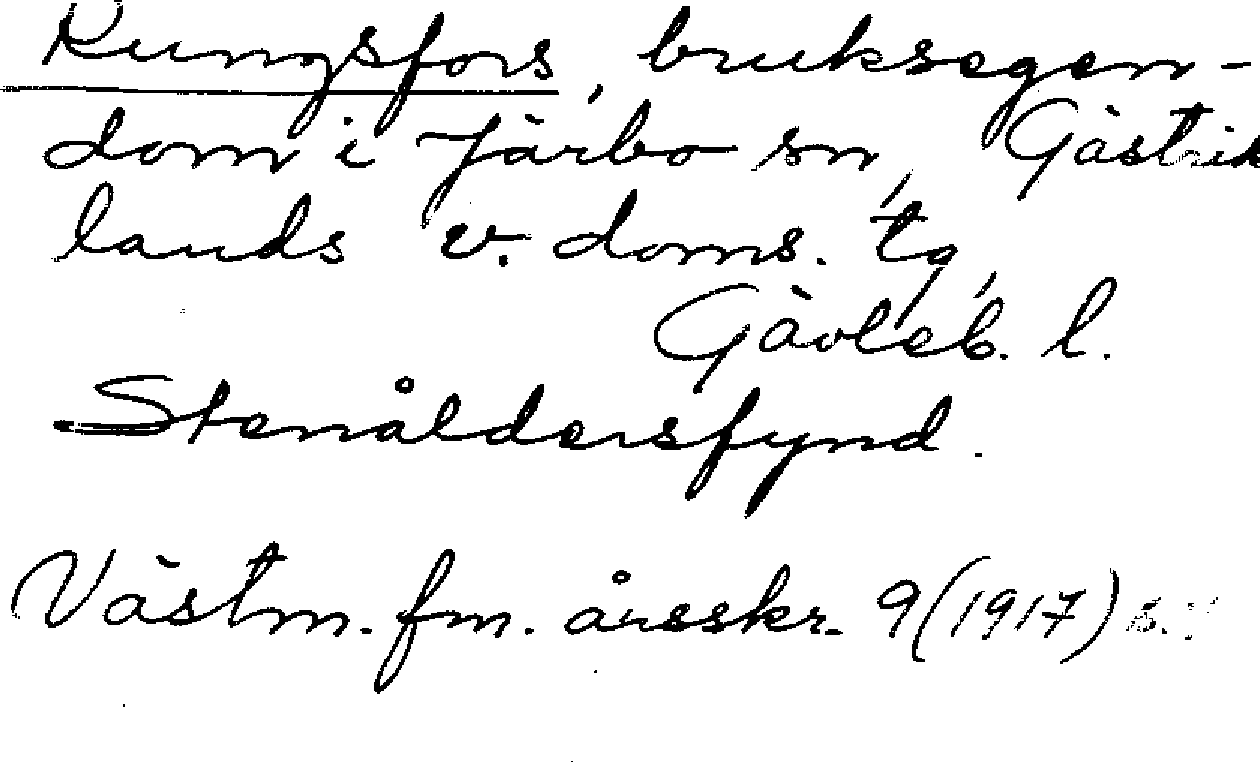 Kungsfors, bruksegen-
dom i Järbo sn, Gästrik
lands v. doms. tg,
Gävleb. l.
Stenåldersfynd.
Västm. fm. årsskr. 9 (1917)